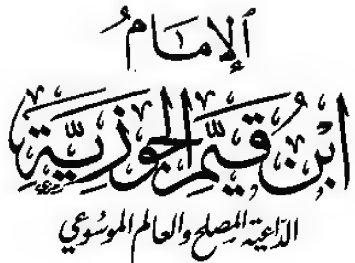 الإمامُ
ابْنُ قَيِّمِ الْجَوْزِيَّةِ
الدّاعية المصلح والعالم الموسوعي